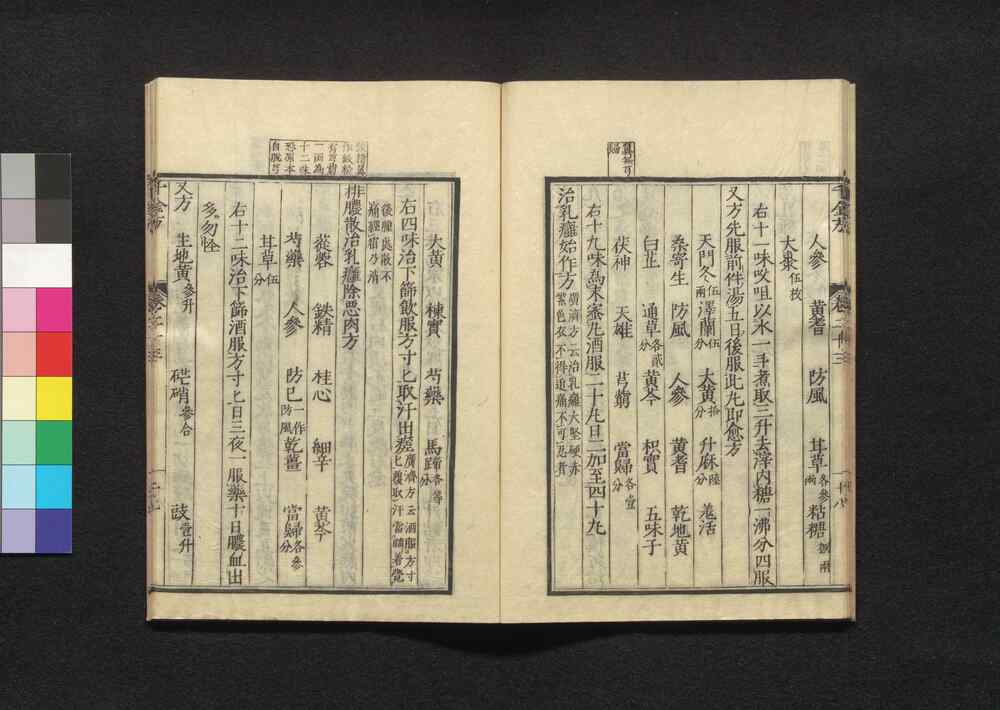 人參　黃耆　防風　甘草各參兩　粘糖
大棗伍枚
右十一味㕮咀以水一斗煮取三升去滓內糖一沸分四服
又方先服前件湯五日後服此丸即愈方
天門冬伍兩　澤蘭伍分　大黃拾分　升麻陸分　羗活
桑寄生　防風　人參　黃耆　乾地黃
白芷　通草各貳分　黃芩　枳實　五味子
茯神　天雄　芎藭　當歸各壹分
右十九味為末蜜丸酒服二十丸日二加至四十丸
治乳癰始作方廣濟方云治乳癰大堅硬赤紫色衣不得近痛不可忍者
大黃　楝實　芍藥　馬蹄各等分
右四味治下篩飲服方寸匕取汗出瘥廣濟方云酒服方寸匕覆取汗當睡著覺
後腫處散不痛經宿乃消
排膿散治乳癰除惡肉方
蓯蓉　鐵精　桂心　細辛　黃芩
芍藥　人參　防已一作防風　乾薑　當歸各參分
甘草伍分
右十二味治下篩酒服方寸匕日三夜一服藥十日膿血出
多勿怪
又方　生地黃參升　芒硝參合　豉壹升
千金方